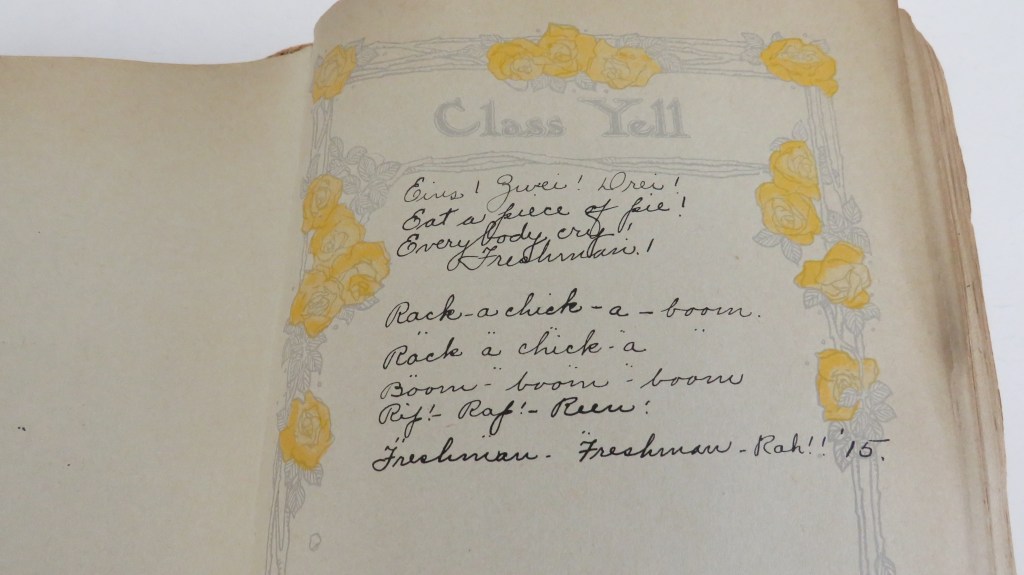 Class Yell
Eins! Zwei! Drei!
Eat a piece of pie!
Everybody cry!
Freshman!
Rack-a chick-a-boom.
Rack a chick-a
Boom-boom-boom
Rif!- Raf!- Reen!
Freshman- Freshman-Rah!! '15.